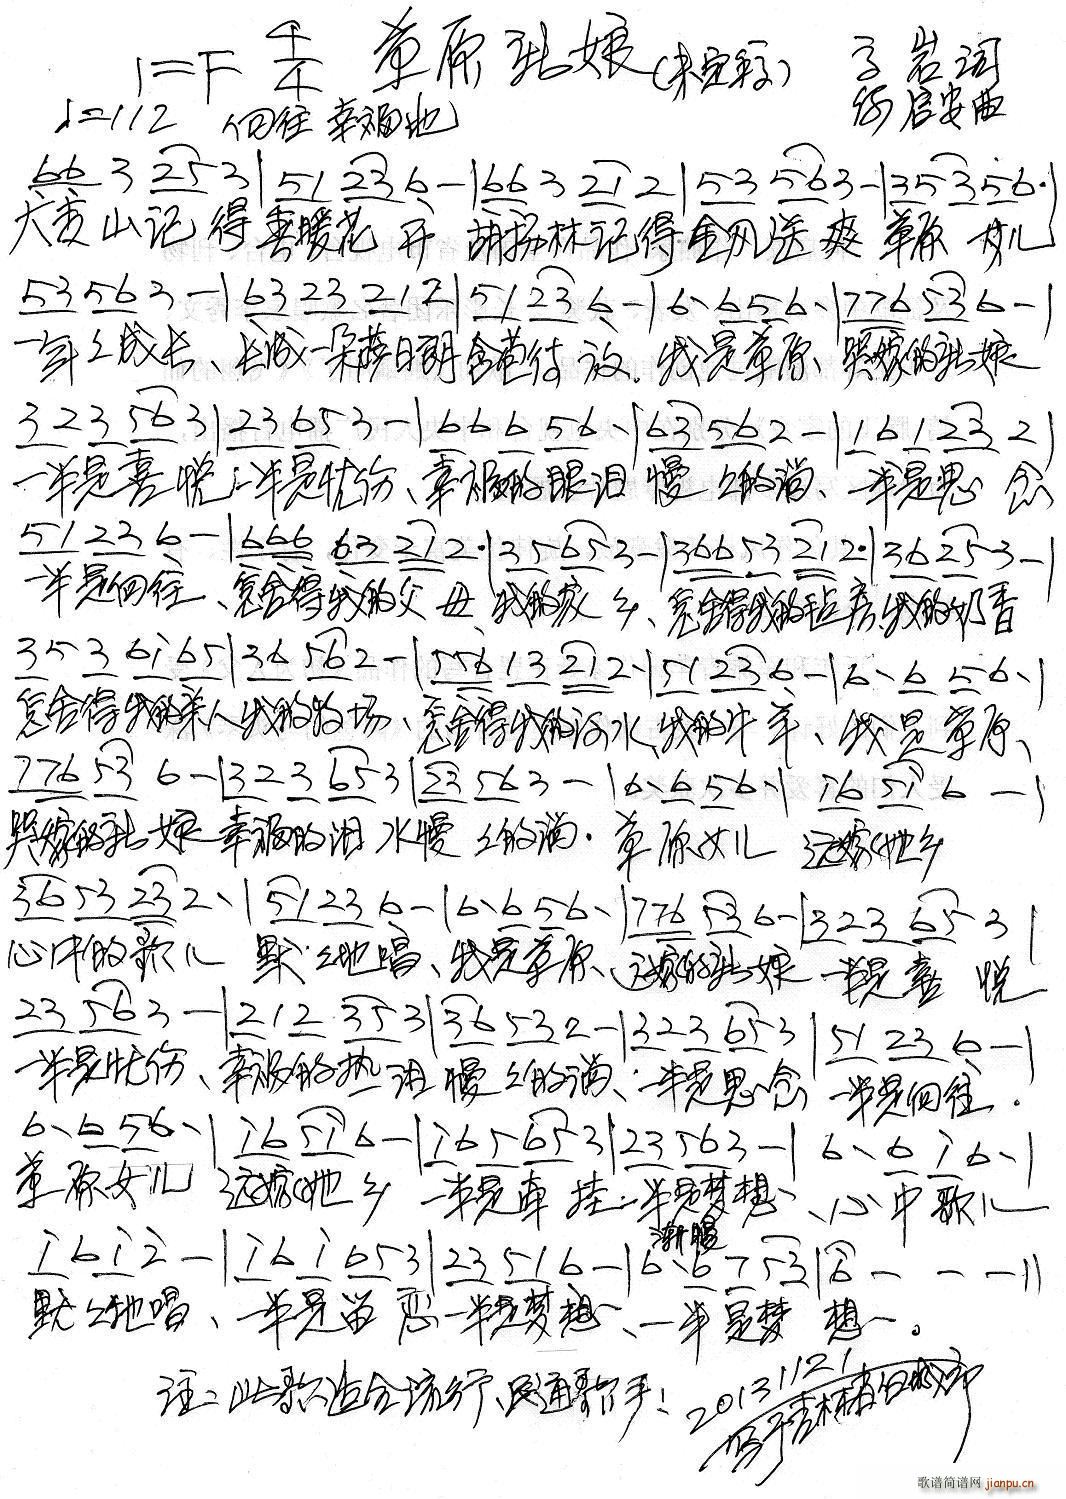 1=F 4/4 草原新娘(未定稿) 子岩词
♩=112 (向往 幸福地) 启安曲
66 3 253|51 23 6-|663 21 2|53 563-|353 56·|
大黄山记得春暖花开 胡杨林记得金风送爽 草原女儿
53563-|6323212|51236-|6·656·|776 536-|
一年々成长、长成一朵萨日朗含苞待放.我是草原、哭嫁的新娘
323563|23653-|666 56·|63562-|161232|
一半是喜悦:一半是忧伤、幸福的眼泪慢々的淌、一半是思念
51236-|666 63 212·|356 53-|36653 212·|36253-|
一半是向往、怎舍得我的父母 我的家乡、怎舍得我的毡房、我的奶香
353 6i65|36562-|55613 212·|51236-|6·656·|
怎舍得我的亲人我的牧场、怎舍得我的河水、我的牛羊、我是草原、
776 53 6-|323653|23563-|6·656·|i65i6-|
哭嫁的新娘 幸福的泪水慢々的淌.草原女儿 远嫁他乡
3653232·|51236-|6·656·|776 536-|323 653|
心中的歌儿 默々地唱、我是草原、远嫁的新娘 一半是喜悦
23563-|212 353|36532-|323653|51236-|
一半是忧伤、幸福的热泪慢々的淌、一半是思念 一半是向往.
6·656·|i65i6-|i65653|23563-|6·6i6·|
草原女儿 远嫁他乡 一半是牵挂:一半是梦想、心中歌儿
渐慢
i6i2-|i6i653|23516-|6·6753|6---||
默々地唱、一半是留恋一半是梦想、一半是梦想。
注:此歌适合流行、民通歌手! 20131121
写于吉林省白城市
歌谱简谱网 jianpu.cn